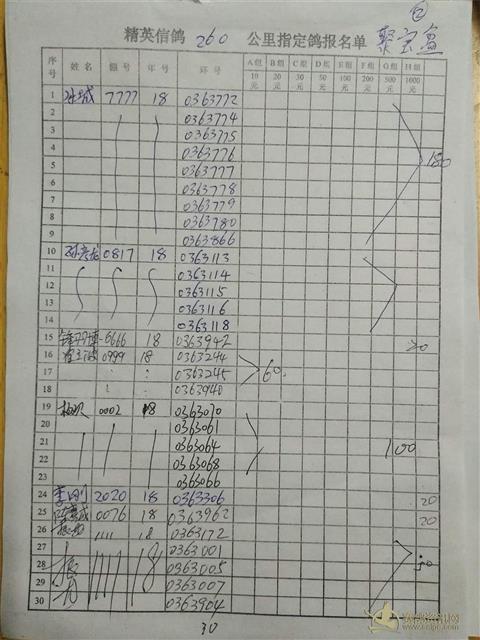 ②
精英信鸽 260 公里指定鸽报名单 聚宝盆
序号 姓名 棚号 年号 环号 A组10元 B组20元 C组30元 D组50元 E组100元 F组200元 G组500元 H组1000元
1 7777 18 0363772
2 0363774
3 0363775
4 0363776 180
5 0363777
6 0363778
7 0363779
8 0363780
9 0363866
10 0817 18 0363113
11 0363114
12 0363115
13 0363116
14 0363118
15 6666 18 0363942 20
16 0999 18 0363244
17 0363245 60
18 0363940
19 0002 18 0363070
20 0363061
21 0363064 100
22 0363068
23 0363066
24 李刚 2020 18 0363306 20
25 0076 18 0363962 20
26 1111 18 0363172
27 0363001
28 1111 18 0363005 50
29 0363007
30 0363904
30